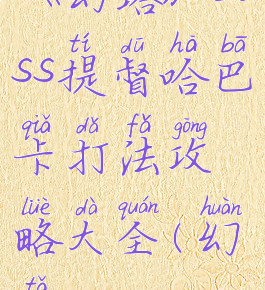 《幻塔》
tí dū hā bā
SS提督哈巴
qiǎ dǎ fǎ gōng
卡打法攻
lüè dà quán huàn
略大全(幻
tǎ